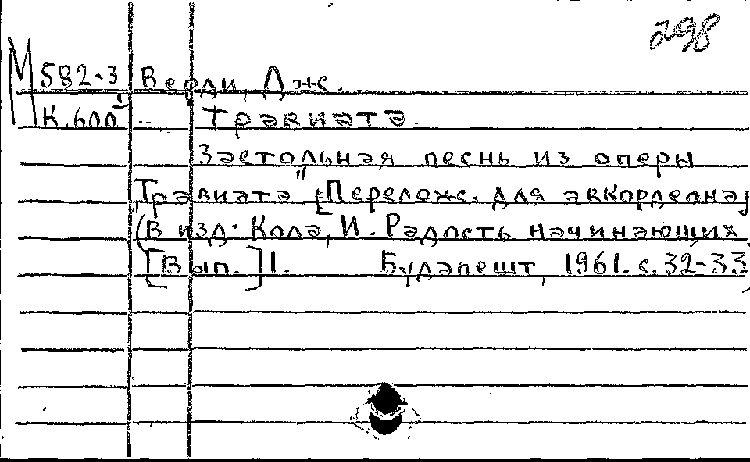 298
М 582-3 Верди, Дж.
К.600 Травиата
Застольная песнь из оперы
„Травиата" [Перелож. для аккордеона]
(В изд: Кола, И. Радость начинающих,
[Вып.] 1. Будапешт, 1961. с. 32-33